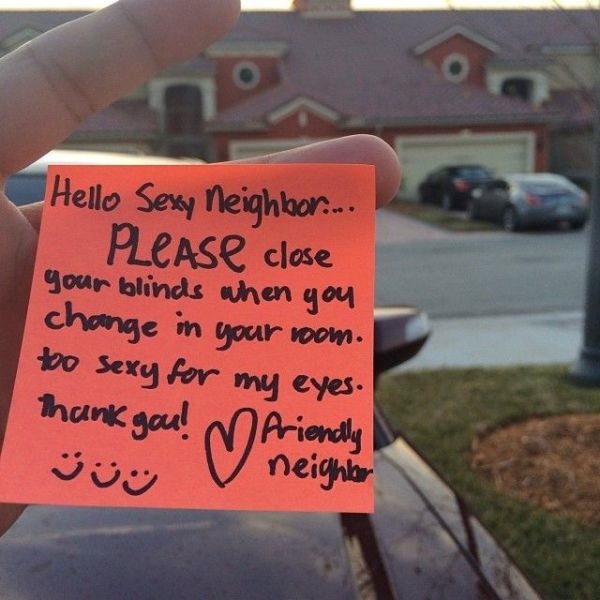 Hello Sexy Neighbor....
PLEASE close
your blinds when you
change in your room.
too sexy for my eyes.
Thank you!
♡ friendly
neighbor